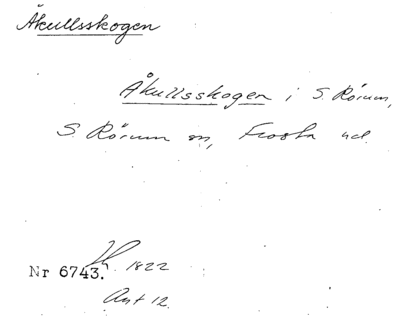 Åkullsskogen
Åkullsskogen i S. Rörum,
S. Rörum sn, Frosta hd.
1822
Nr 6743.
Akt 12.